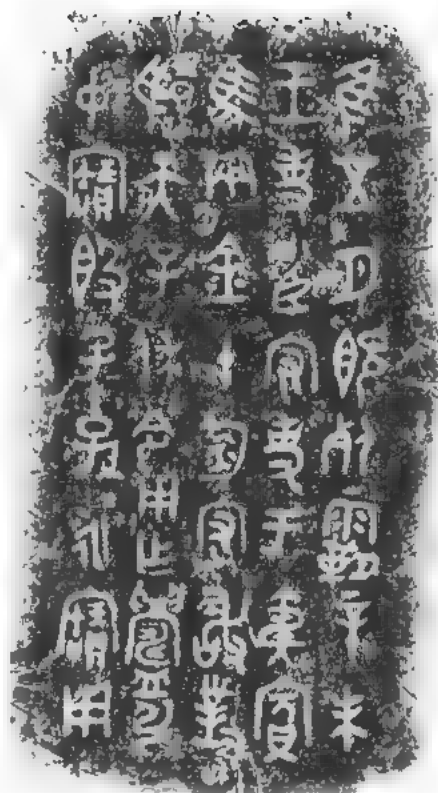 隹五月既死霸辛未
王吏小臣守吏于夷賓
馬兩金十鈞守敢對
揚天子休令用乍鑄引
中寶𣪘子子孫孫永寶用